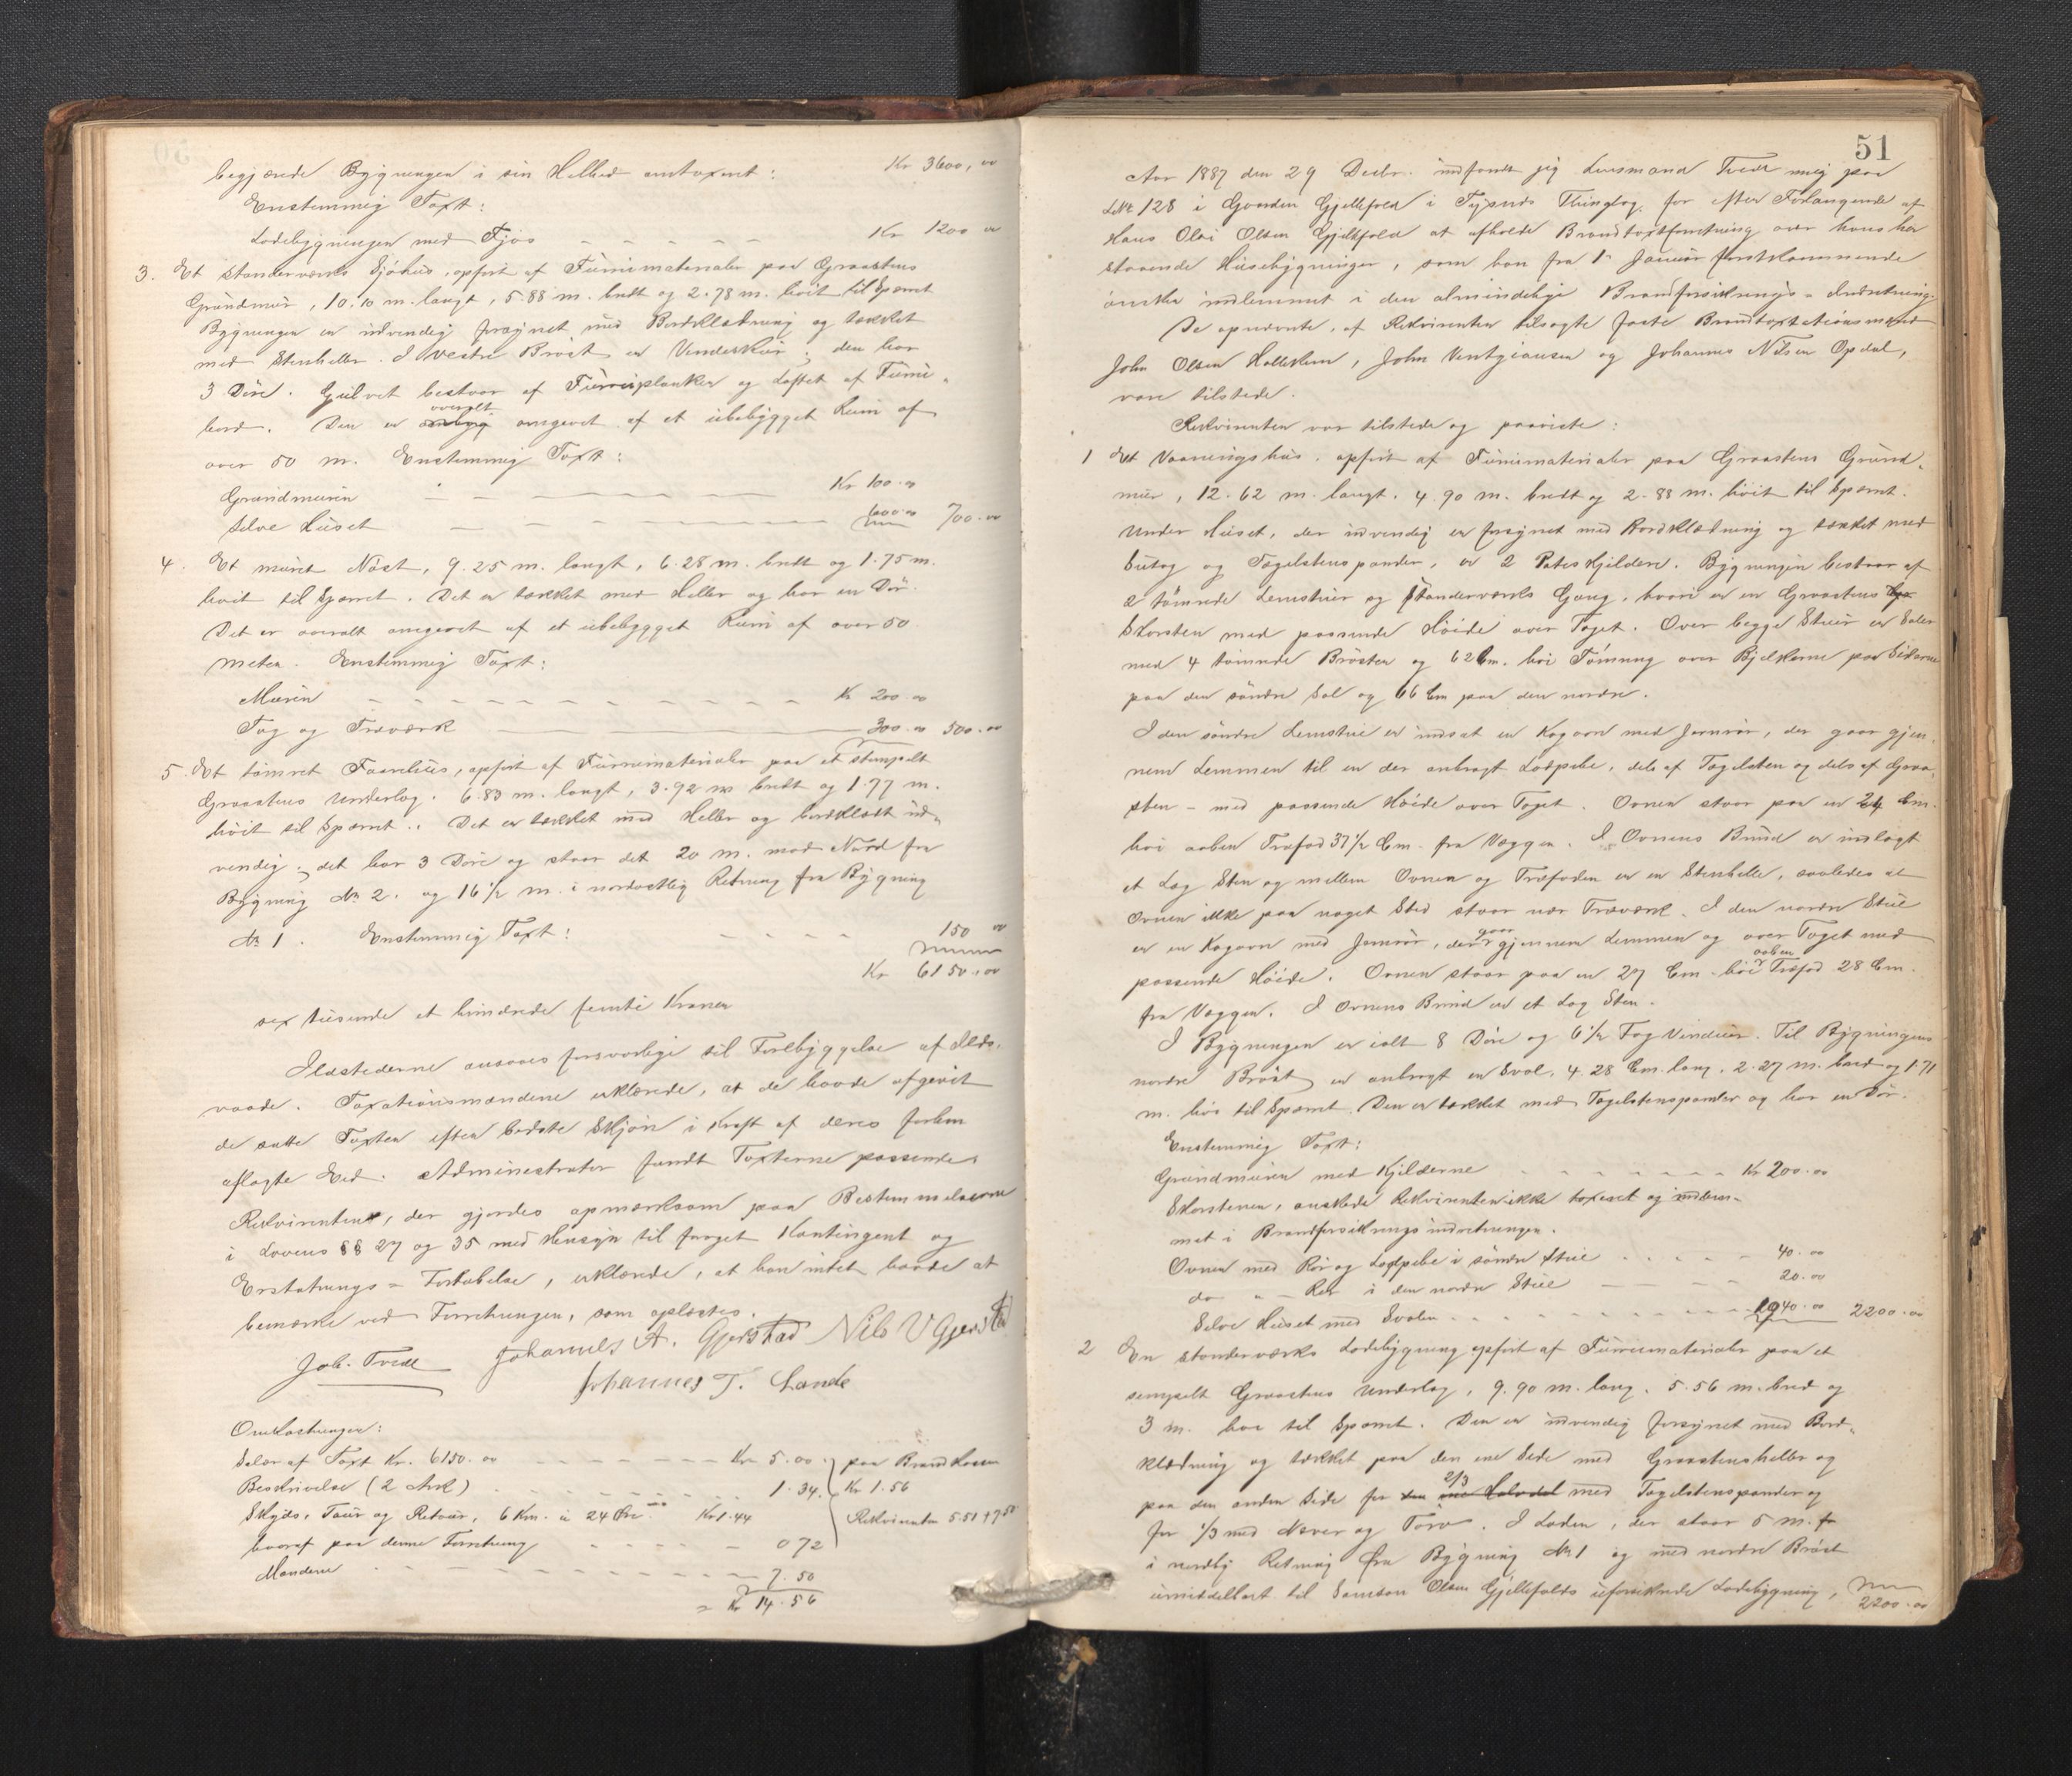 begjærede Bygningen i sin Helhed omtaxeret: Kr 3600,00
Enstemmig Taxt:
Ladebygningen med Fjøs - - - - - Kr 1200 00
3. Et standerværks Sjøhus, opført af Furumaterialer paa Graastens
Grundmur, 10.10 m. langt, 5.88 m. bredt og 2.78 m. høit til Sparret
Bygningen er udvendig forsynet med Bordklædning og tækket
med Stenheller. I vestre Brøst er Vindeskur; den har
3 Døre. Gulvet bestaar af Furuplanker og Loftet af Furu-
bord. Den er overalt omgivet af et ubebygget Rum af
over 50 m. Enstemmig Taxt:
Grundmuren - - - - - Kr 100.00
Selve Huset - - - - - 600.00 700.00
4. Et muret Nøst, 9.25 m. langt, 6.28 m. bredt og 1.75 m.
høit til Sparret. Det er tækket med Heller og har en Dør.
Det er overalt omgivet af et ubebygget Rum af over 50
meter. Enstemmig Taxt:
Muren - - - - - Kr 200.00
Tag og Træværk 300.00 500.00
5. Et tømret Faarehus, opført af Furumaterialer paa et simpelt
Graastens Underlag. 6.83 m. langt, 3.92 m bredt og 1.77 m.
høit til Sparret. Det er tækket med Heller og bordklædt ud-
vendig; det har 3 Døre og staar det 20 m. mod Nord fra
Bygning No 2. og 16 1/2 m. i nordostlig Retning fra Bygning
No 1. Enstemmig Taxt: - - - - 150 00
Kr 6150.00
sex tusende et hundrede femti Kroner
Ildstederne ansaaes forsvarlige til Forebyggelse af Ilds-
vaade. Taxationsmændene erklærede, at de havde afgivet
de satte Taxter efter bedste Skjøn i Kraft af deres forhen
aflagte Ed. Administrator fandt Taxterne passende.
Rekvirenten, der gjordes opmærksom paa Bestemmelserne
i Lovens §§ 27 og 35 med Hensyn til forøget Kontingent og
Erstatnings-Fortabelse, erklærede, at han intet havde at
bemærke ved Forretningen, som oplæstes.
Joh. Tvedt Johannes A. Gjerstad Nils V Gjerstad
Johannes T. Lande
Omkostninger:
Salær af Taxt Kr. 6150.00 - - - - Kr 5.00 paa Brandkassen
Beskrivelse (2 Ark) - - - - 1.34. Kr 1.56
Skyds, Tour og Retour, 6 Km. à 24 Øre Kr 1.44 Rekvirenten 5.51 + 7.50
hvoraf paa denne Forretning - - - - 0 72
Mændene - - - - 7.50
= Kr 14.56
51
Aar 1887 den 29 Decbr. indfandt jeg Lensmand Tvedt mig paa
LNr 128 i Gaarden Gjellefold i Tysnes Thinglag for efter Forlangende af
Hans Olai Olsen Gjellefold at afholde Brandtaxtforretning over hans her
staaende Husebygninger, som han fra 1ste Januar førstkommende
ønsker indlemmet i den almindelige Brandforsikrings-Indretning.
De opnævnte, af Rekvirenten tilsagte faste Brandtaxtationsmænd
John Olsen, John og Johannes Nilsen Opdal,
vare tilstede.
Rekvirenten var tilstede og paaviste:
1 Et Vaaningshus. opført af Furumaterialer paa Graastens Grund-
mur, 12.62 m. langt. 4.90 m. bredt og 2.88 m. høit til Sparret.
Under Huset, der udvendig er forsynet med Bordklædning og tækket med
Sutag og Tagstenspander, er 2 Poteskjeldere. Bygningen bestaar af
2 tømrede Lemstuer og Standerværks Gang, hvori er en Graastens
Skorsten med passende Høide over Taget. Over begge Stuer er Saler
med 4 tømrede Brøster og 62 Cm. høi Tømring over Bjelkerne paa Siderne
paa den søndre Sal og 66 Cm paa den nordre.
I den søndre Lemstue er indsat en Kogovn med Jernrør, der gaar gjen-
nem Lemmen til en der anbragt Lodpibe, dels af Tagelsten og dels af Graa-
sten - med passende Høide over Taget. Ovnen staar paa en 24 Cm.
høi aaben Træfod 37 1/2 Cm. fra Væggen. I Ovnens Bund er indlagt
et Lag Sten og mellem Ovnen og Træfoden er en Stenhelle, saaledes at
Ovnen ikke paa noget Sted staar nær Træværk. I den nordre Stue
er en Kogovn med Jernrør, der gaar gjennem Lemmen og over Taget med
passende Høide. Ovnen staar paa en 27 Cm. høi aaben Træfod 28 Cm.
fra Væggen. I Ovnens Bund er et Lag Sten.
I Bygningen er ialt 8 Døre og 6 1/2 Fag Vinduer. Til Bygningens
nordre Brøst er anbragt en Sval, 4.28 Cm. lang. 2.27 m. bred og 1.71
m. høi til Sparret. Den er tækket med Tagelstenspander og har en Dør.
Enstemmig Taxt:
Grundmuren med Kjelderne - - - - Kr 200.00
Skorstenen, ønskede Rekvirenten ikke taxeret og indlem-
met i Brandforsikringsindretningen.
Ovnen med Rør og Lodpibe i søndre Stue - - - 40.00
do " - Rør i den nordre Stue - - - 20.00
Selve Huset med Svalen - - - - 1940.00 2200.00
2 En standerværks Ladebygning opført af Furumaterialer paa et
simpelt Graastens Underlag, 9.90 m. lang. 5.56 m. bred og
3 m. høi til Sparret. Den er udvendig forsynet med Bord-
klædning og tækket paa den ene Side med Graastensheller og
paa den anden Side for den ene Halvdel 2/3 med Tagelstenspander og
for 1/3 med Næver og Torv. I Laden, der staar 5 m. fr
i nordlig Retning fra Bygning No 1 og med nordre Brøst
umiddelbart til Samson Olsen Gjellefolds uforsikrede Ladebygning,
2200.00